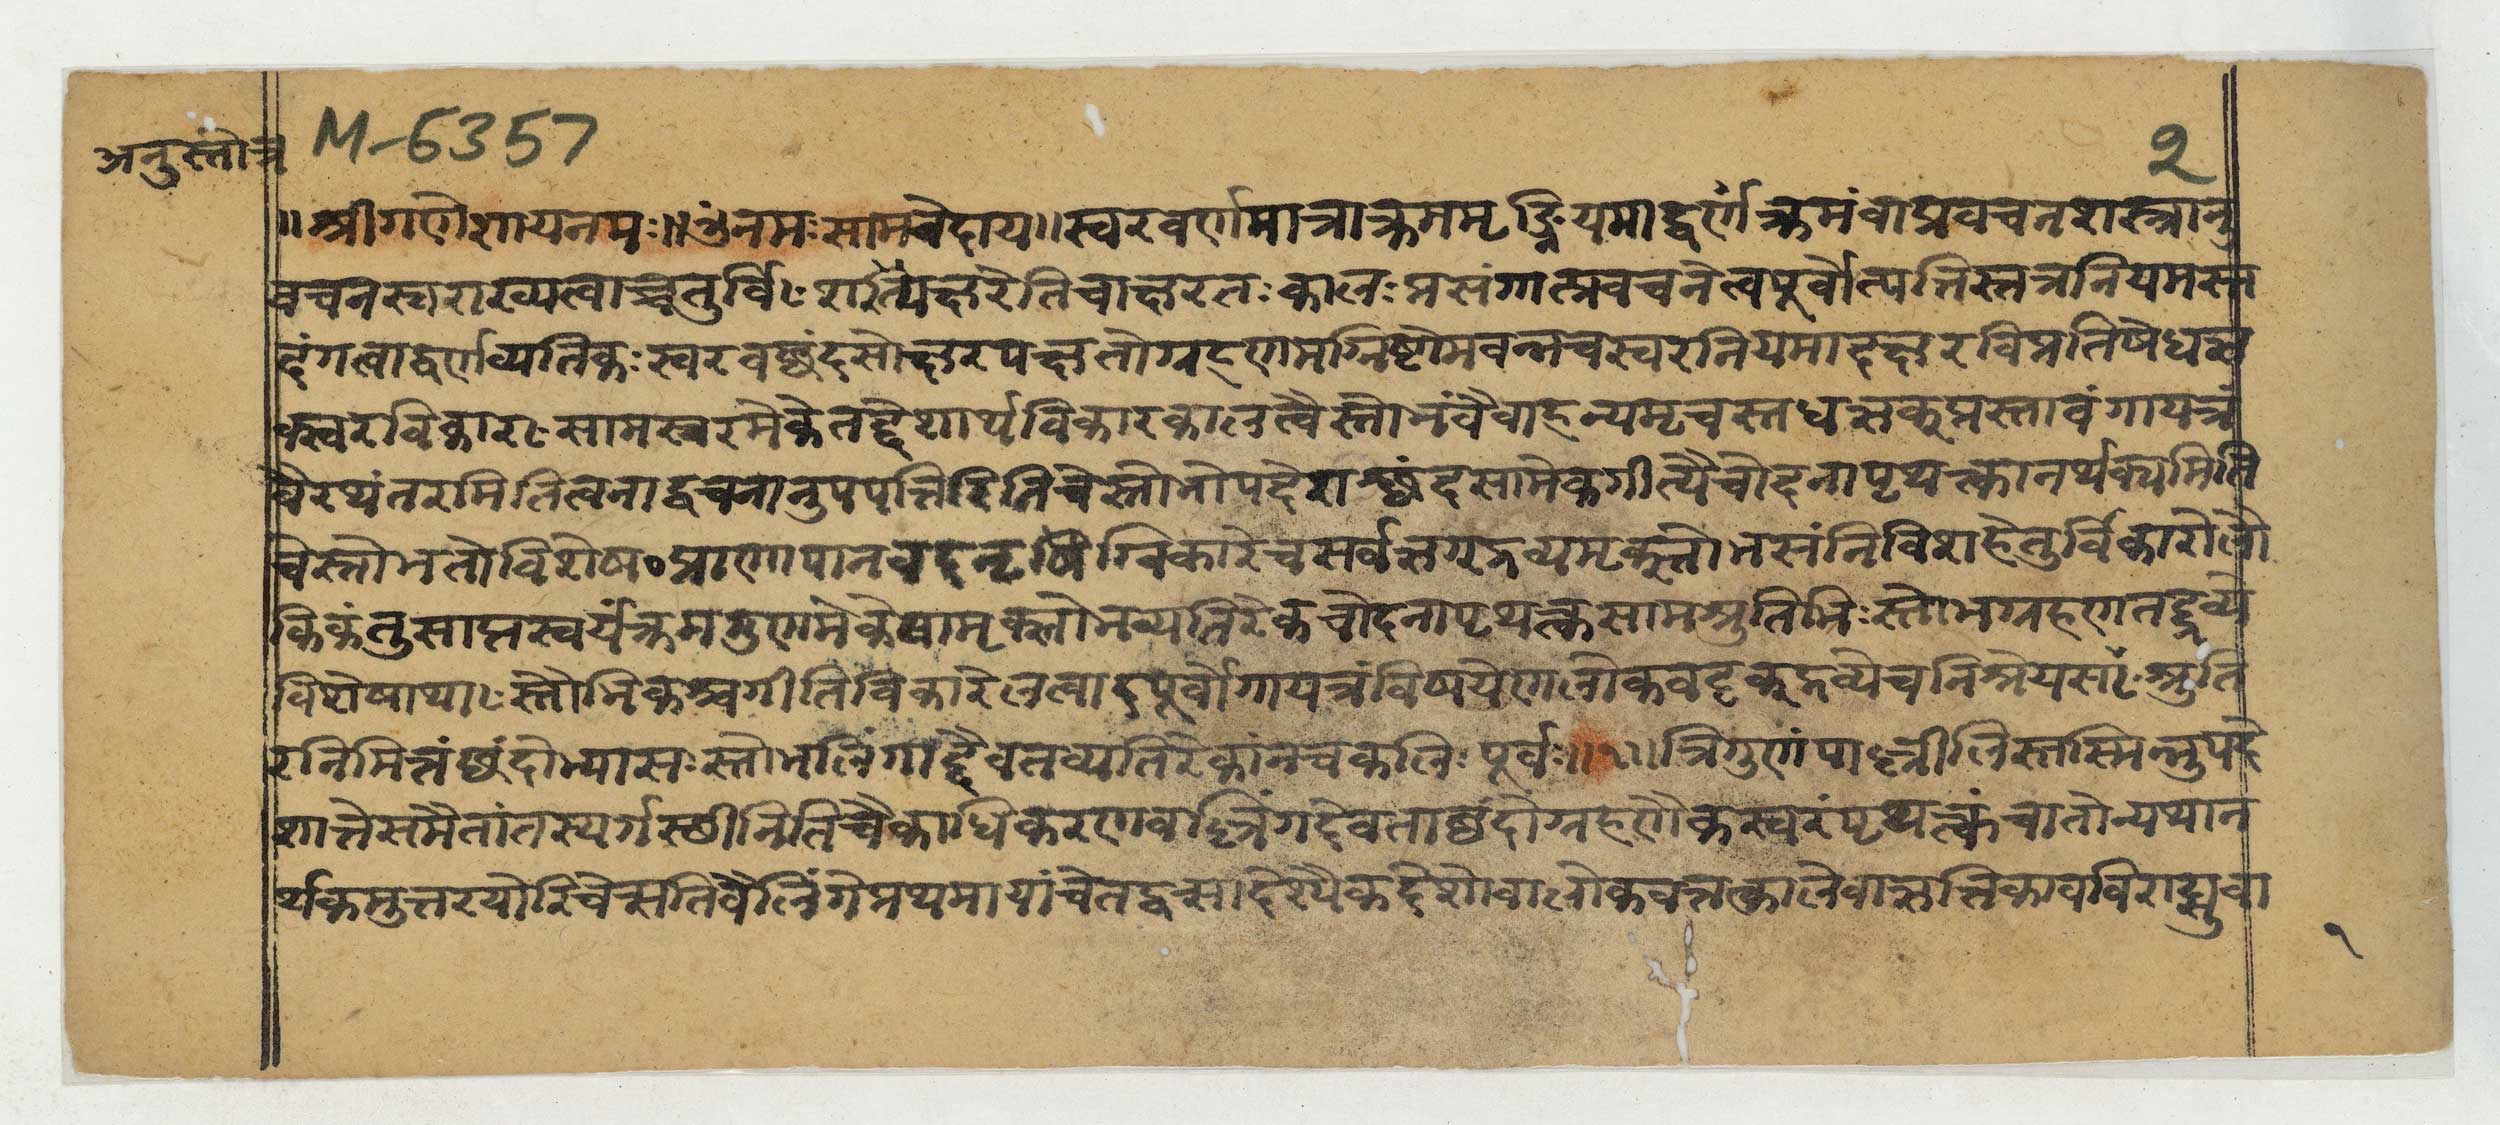 अनुस्तोत्र
M-6357
2
॥श्रीगणेशायनमः॥ॐनमःसामवेदाय॥स्वरवर्णमात्राक्रममृङ्नियमाद्वर्णक्रमंवाप्रवचनशस्त्रानु
वचनस्वराख्यत्वाच्चतुर्विꣳशत्यक्षरेतिचाक्षरतःकालःप्रसंगात्प्रवचनेत्वपूर्वोत्पत्तिस्तत्रनियमस्त
दंगत्वाद्वर्णव्यतिकःस्वरवच्छंदसोक्षरपक्षतोग्रहणमग्निष्टोमवन्नचस्वरनियमादक्षरविप्रतिषेधस्त्र
क्स्वरविकारꣳसामस्वरमेकेतद्देशार्थविकारकालत्वैस्तोभंवैवाहन्यमृचस्तथसकृत्प्रस्तावंगायत्रं
वैरथंतरमितित्वनाद्वचनानुपपत्तिरितिचेस्तोभोपदेशाच्छंदसामेकगीत्यैचोदनापृथक्त्कानर्थक्यमिति
चेस्तोभतोविशेष०प्राणापानवदनृषिर्विकारेचसर्वत्रगृह्नव्यमृक्स्तोभसंनिविशहेतुर्विकारोलो
किकंतुसाम्नस्वर्यक्रमतुणमेकेषामृक्स्तोभव्यतिरेकचोदनापृथक्त्कसामश्रुतिभिःस्तोभग्रहणतद्द्रव्ये
विशेषायाꣳस्तौभिकश्चगीतिविकारेलत्वादपूर्वोगायत्रंविषयेणलोकवदृक्द्रव्येचनिश्रेयसाꣳश्रुति
रनिमित्तंछंदोभ्यासःस्तोभलिंगाद्दैवतव्यतिरेकांनचकलिःपूर्वः॥१॥त्रिगुणंपाꣳत्रीलिस्तस्मिन्नुपदे
शात्तेसमैतांतस्यर्गस्छीनितिचैकाधिकरणवद्भिन्नंगदेवताछंदोग्रहणेकस्वरंपृथक्त्कंचातोन्यथान
र्थकमुत्तरयोरिचेत्सतिवैलिंगेप्रथमायांचेतद्वत्सादेश्यैकदेशोवालोकवन्नत्कालेवासत्तिकावविराट्सुवा
१